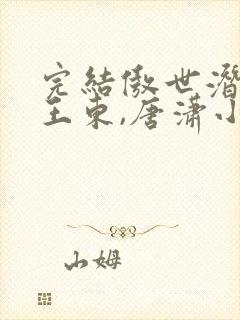 完結傲世潛
王東,唐瀟小
山姆